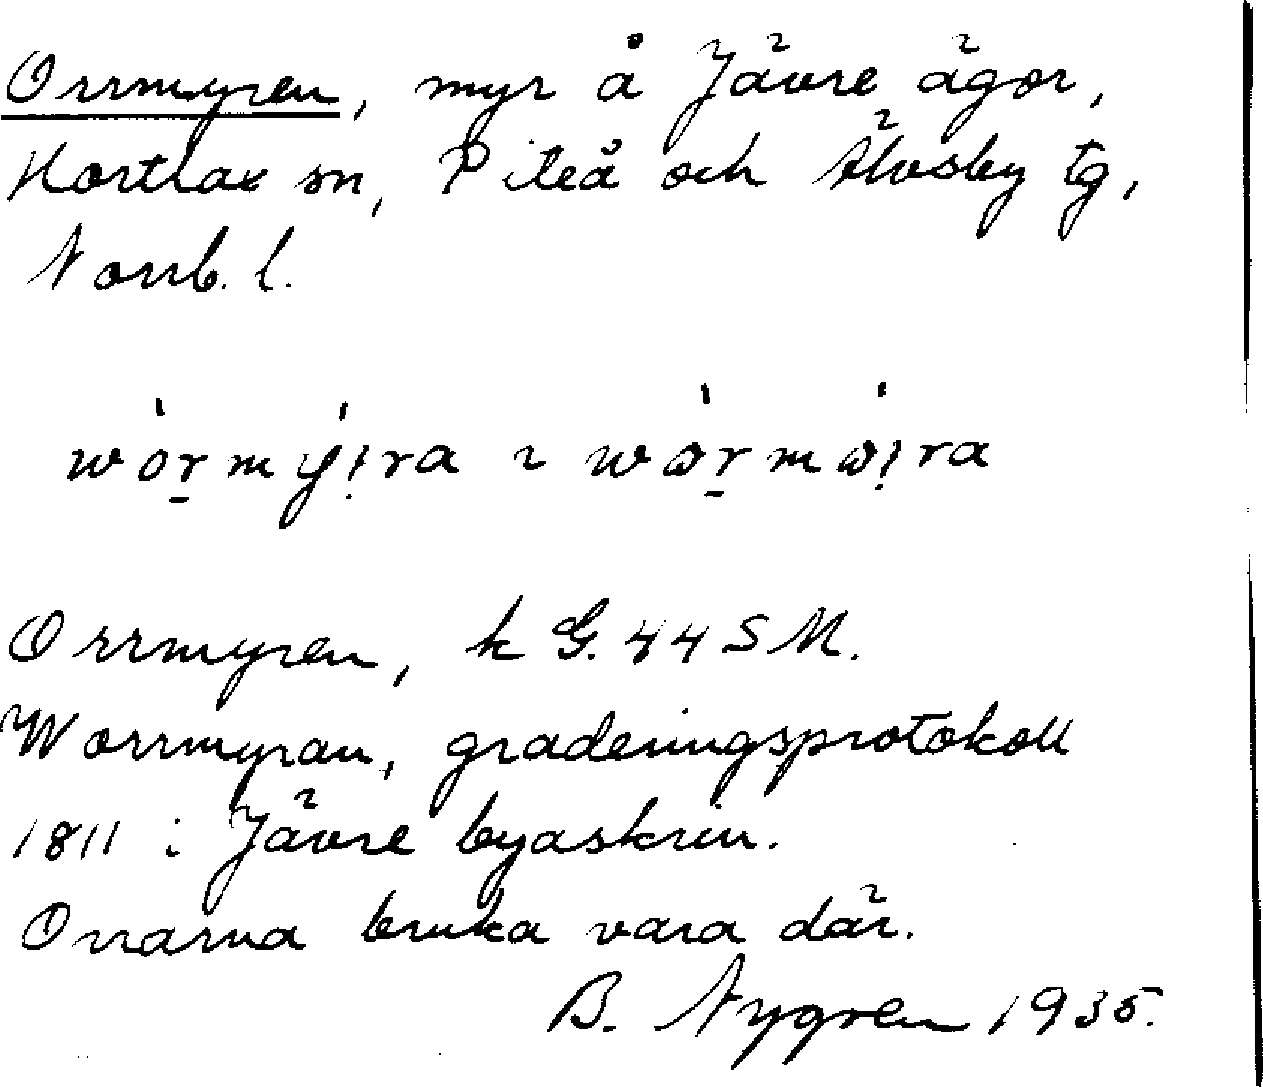 Orrmyren, myr å Jävre ägor,
Hortlax sn, Piteå och Älvsby tg,
Norrb. l.
Orrmyren, k G. 44 SM.
Worrmyran, graderingsprotokoll
1811 i Jävre byaskrin.
Orrarna bruka vara där.
B. Nygren 1935.